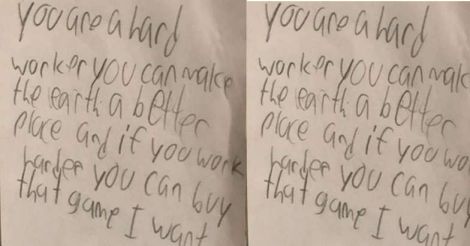 you are a hard
worker you can make
the earth a better
place and if you work
harder you can buy
that game I want
you are a hard
worker you can mak
the earth a better
place and if you wo
harder you can bu
that game I want